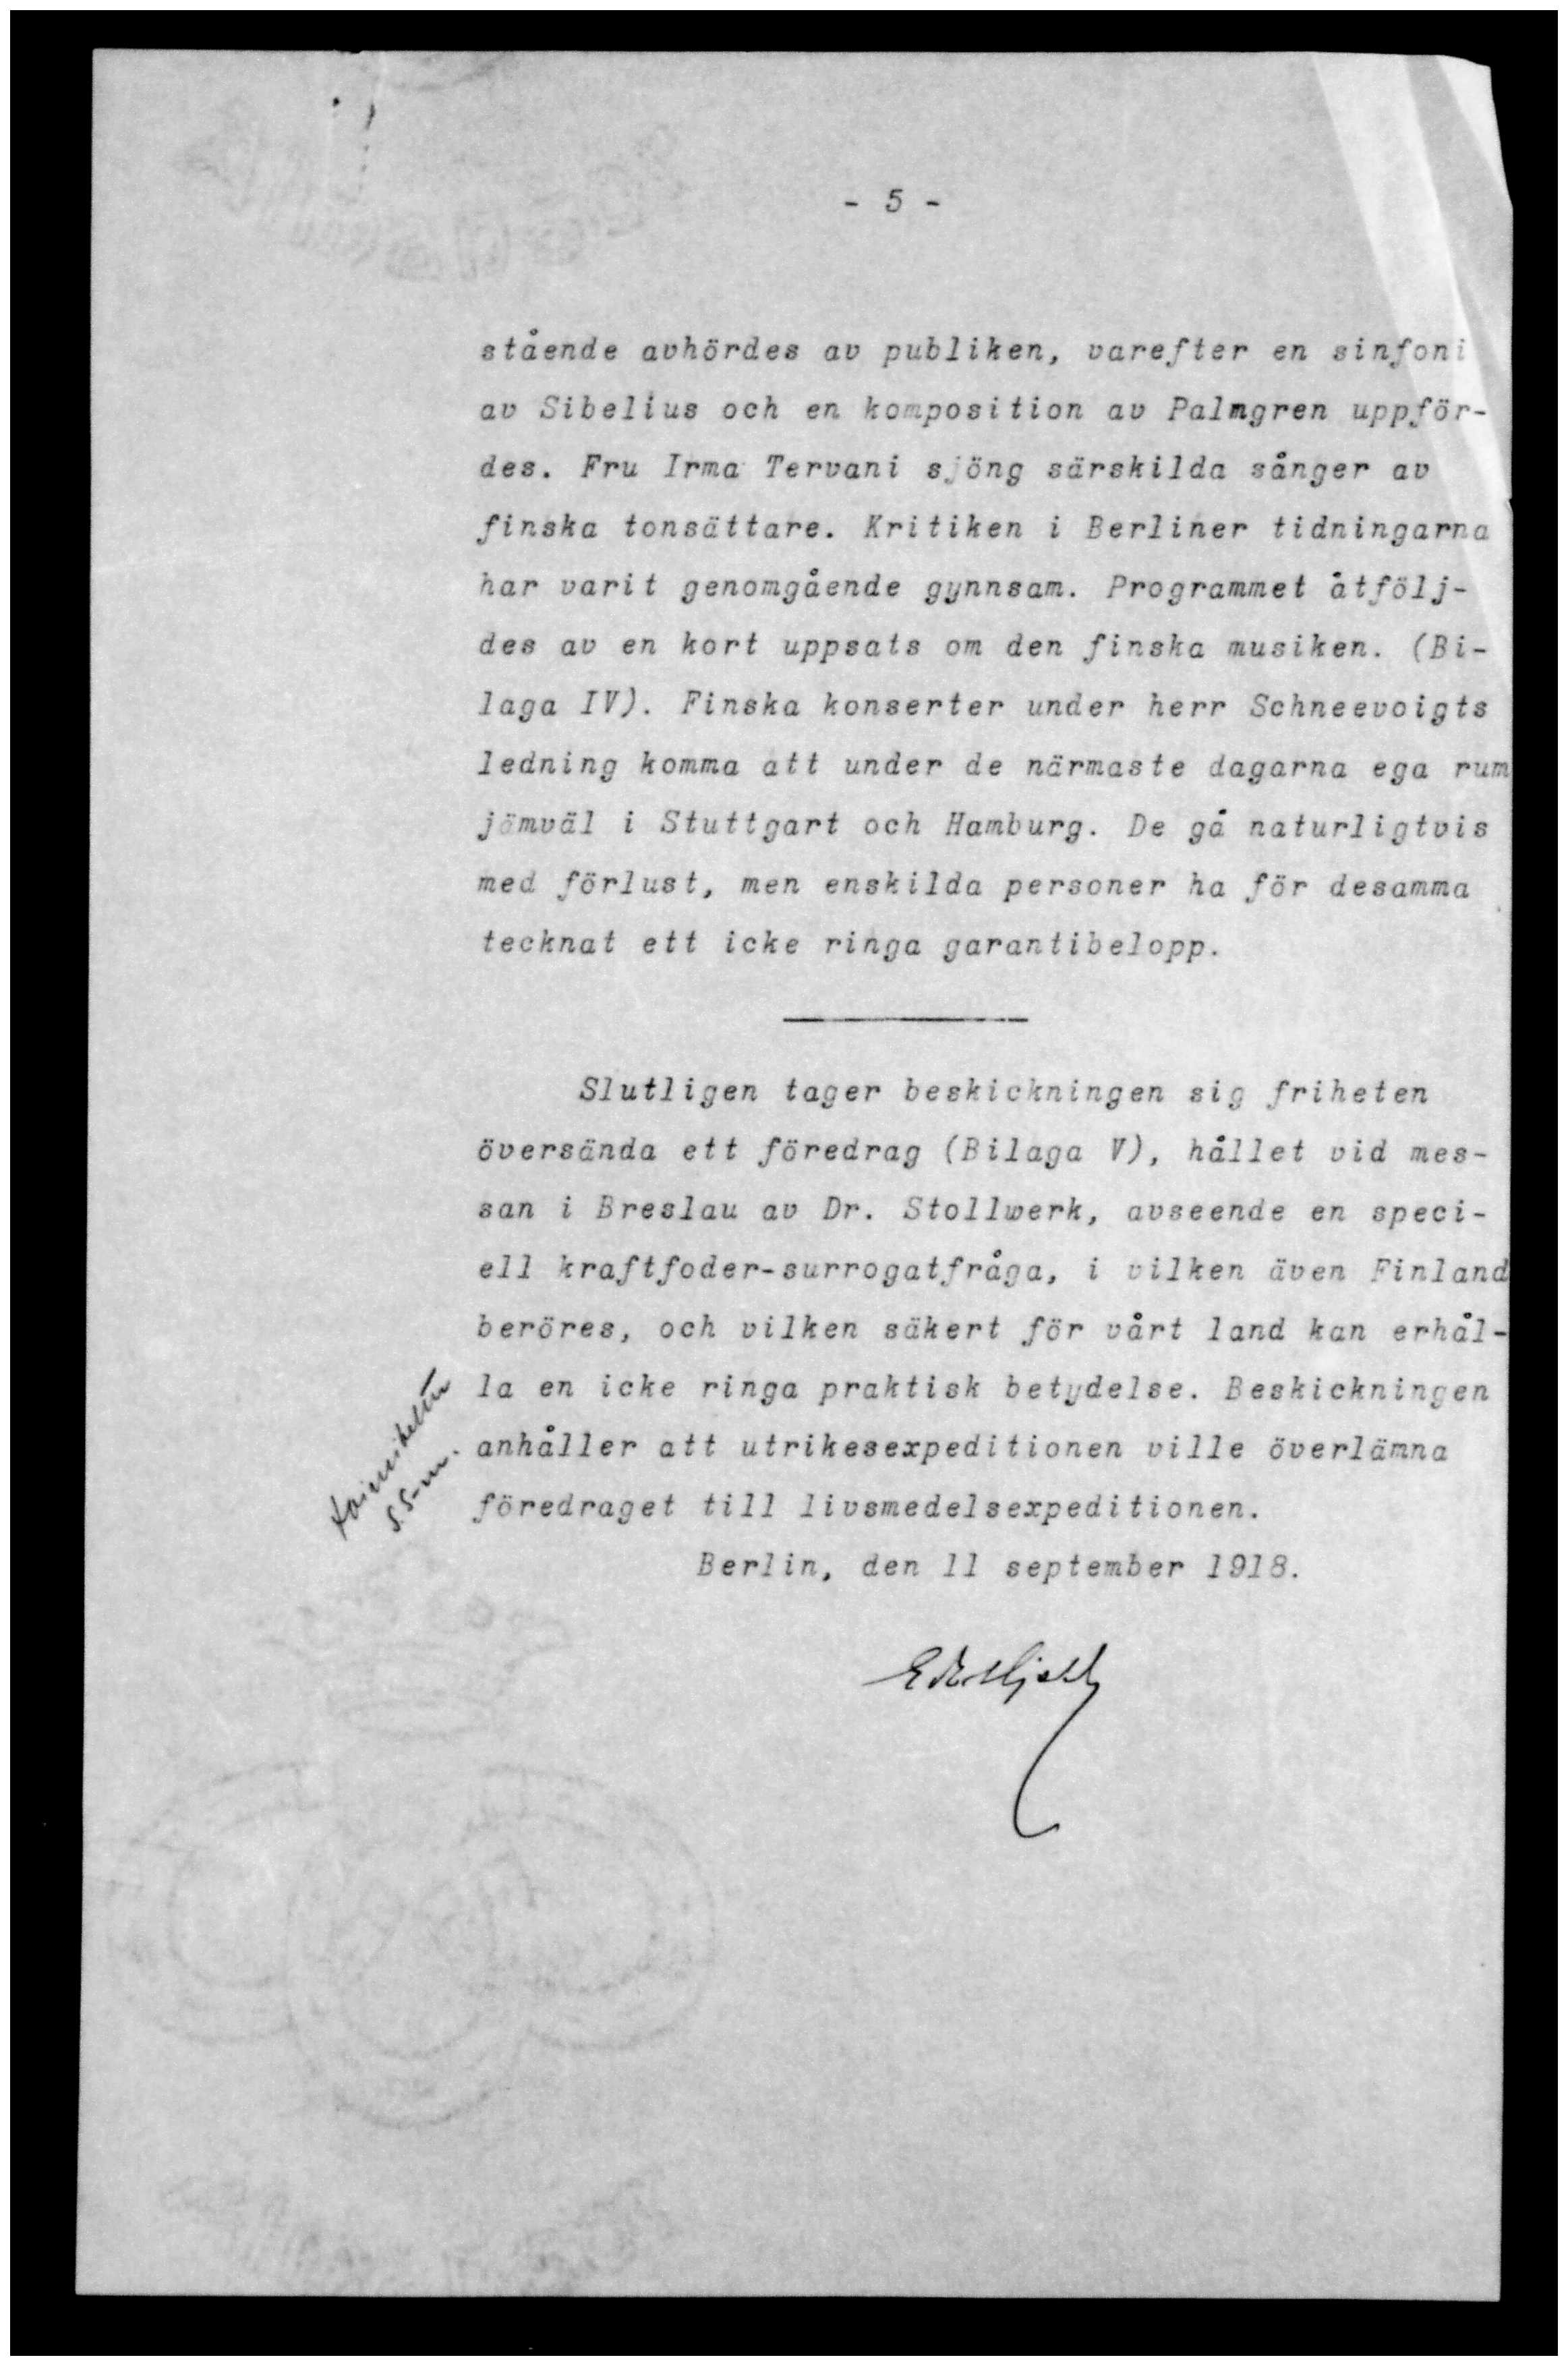 - 5 -
stående avhördes av publiken, varefter en sinfoni
av Sibelius och en komposition av Palmgren uppför-
des. Fru Irma Tervani sjöng särskilda sånger av
finska tonsättare. Kritiken i Berliner tidningarna
har varit genomgående gynnsam. Programmet åtfölj-
des av en kort uppsats om den finska musiken. (Bi-
laga IV). Finska konserter under herr Schneevoigts
ledning komma att under de närmaste dagarna ega rum
jämväl i Stuttgart och Hamburg. De gå naturligtvis
med förlust, men enskilda personer ha för desamma
tecknat ett icke ringa garantibelopp.
Slutligen tager beskickningen sig friheten
översända ett föredrag (Bilaga V), hållet vid mes-
san i Breslau av Dr. Stollwerk, avseende en speci-
ell kraftfoder-surrogatfråga, i vilken även Finland
beröres, och vilken säkert för vårt land kan erhål-
la en icke ringa praktisk betydelse. Beskickningen
anhåller att utrikesexpeditionen ville överlämna
föredraget till livsmedelsexpeditionen.
Berlin, den 11 september 1918.